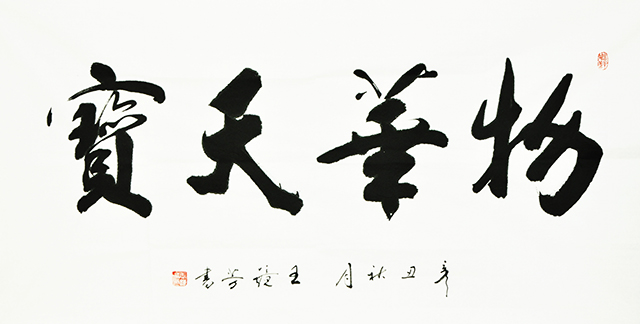 物華天寶
辛丑秋月 王 芳書